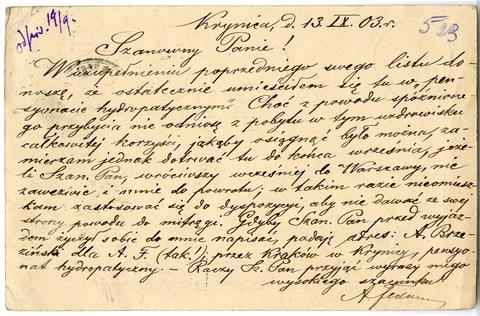 odpow. 14/9.
Krynica, d. 13. IX. 03. r.
523
Szanowny Panie!
W uzupełnieniu poprzedniego swego listu do-
noszę, że ostatecznie umieściłem się tu w „pen-
syonacie hydropatycznym". Choć z powodu spóźnione-
go przybycia nie odniosę z pobytu w tym uzdrowisku
całkowitej korzyści, jakąby osiągnąć było można, za-
mierzam jednak dotrwać tu do końca września, jeże-
li Szan. Pan, wróciwszy wcześniej do Warszawy, nie
zawezwie i mnie do powrotu; w takim razie nieomiesz-
kam zastosować się do dyspozycji, aby nie dawać ze swej
strony powodu do mitręgi. Gdyby Szan. Pan przed wyjaz-
dem życzył sobie do mnie napisać, podaję adres: A. Brze-
ziński dla A. F. (tak!), przez Kraków w Krynicy, pensyo-
nat hydropatyczny. – Raczy Sz. Pan przyjąć wyrazy mego
wysokiego szacunku